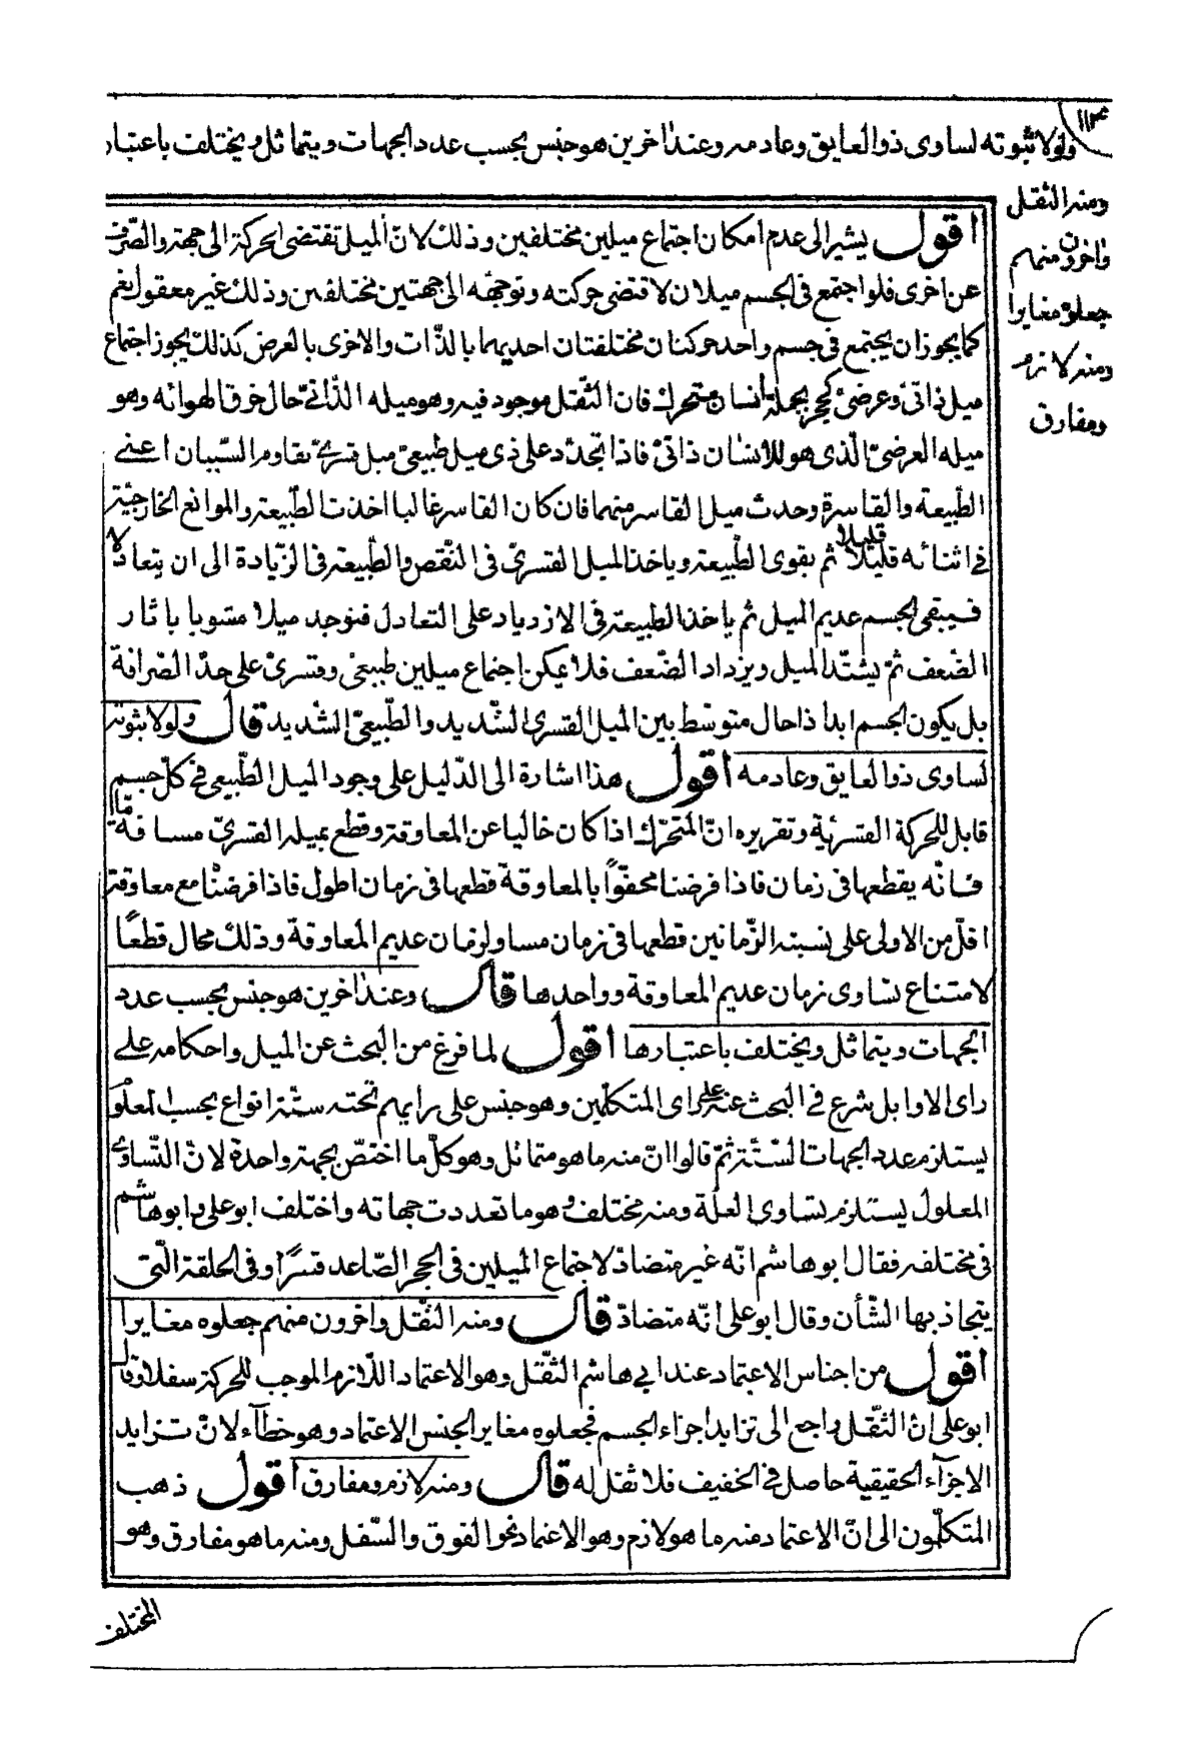 ١١٣
ولولا ثبوته لساوى ذو العايق وعادمه وعند آخرين هو جنس بحسب عدد الجهات ويتماثل ويختلف باعتبار
ومنه الثقل
وآخرون منهم
جعلوه مغايرا
ومنه لازم
ومفارق
اقول يشير الى عدم امكان اجتماع ميلين مختلفين وذلك لان الميل تقتضى الحركة الى جهة والصرف
عن اخرى فلو اجتمع فى الجسم ميلان لاقتضى حركته وتوجهه الى جهتين مختلفين وذلك غير معقول نعم
كما يجوز ان يجتمع فى جسم واحد حركتان مختلفتان احديهما بالذات والاخرى بالعرض كذلك يجوز اجتماع
ميل ذاتى وعرضى كحجر يحمله انسان متحرك فان الثقل موجود فيه وهو ميله الذاتى حال خرق الهوائه وهو
ميله العرضى الذى هو للانسان ذاتى فاذا تجدد على ذى ميل طبيعى ميل قسرى تقاوم السببان اعنى
الطبيعة والقاسرة وحدث ميل القاسر منهما فان كان القاسر غالبا اخذت الطبيعة والموانع الخارجية
فى اثنائه قليلا قليلا ثم يقوى الطبيعة وياخذ الميل القسرى فى النقص والطبيعة فى الزيادة الى ان يتعادلا
فيبقى الجسم عديم الميل ثم ياخذ الطبيعة فى الازدياد على التعادل فنوجد ميلا مشوبا باثار
الضعف ثم يشتد الميل ويزداد الضعف فلا يمكن اجتماع ميلين طبيعى وقسرى على حد الصرافة
بل يكون الجسم ابدا ذا حال متوسط بين الميل القسرى الشديد والطبيعى الشديد قال ولولا ثبوته
لساوى ذو العايق وعادمه اقول هذا اشارة الى الدليل على وجود الميل الطبيعى فى كل جسم
قابل للحركة القسرية وتقريره ان المتحرك اذا كان خاليا عن المعاوقة وقطع بميله القسرى مسافة ما
فانه يقطعها فى زمان فاذا فرضنا محفوا بالمعاوقة قطعها فى زمان اطول فاذا فرضنا مع معاوقة
اقل من الاولى على نسبته الزمانين قطعها فى زمان مساو لزمان عديم المعاوقة وذلك محال قطعا
لامتناع تساوى زمان عديم المعاوقة وواحدها قال وعند آخرين هو جنس بحسب عدد
الجهات ويتماثل ويختلف باعتبارها اقول لما فرغ من البحث عن الميل واحكامه على
راى الاوايل شرع فى البحث عنه على راى المتكلمين وهو جنس على رايهم تحته ستة انواع بحسب المعلو
يستلزم عدد الجهات الستة ثم قالوا ان منه ما هو متماثل وهو كل ما اختص بجهة واحدة لان التساوى
المعلول يستلزم تساوى العلة ومنه مختلف وهو ما تعددت جهاته واختلف ابو على وابو هاشم
فى مختلفه فقال ابو هاشم انه غير متضاد لاجتماع الميلين فى الحجر الصاعد قسرا وفى الحلقة التى
يتجاذبها الشأن وقال ابو على انه متضاد قال ومنه الثقل وآخرون منهم جعلوه مغايرا
اقول من اجناس الاعتماد عند ابى هاشم الثقل وهو الاعتماد اللازم الموجب للحركة سفلا وقال
ابو على ان الثقل راجع الى تزايد اجزاء الجسم فجعلوه مغاير الجنس الاعتماد وهو خطآء لان تزايد
الاجزآء الحقيقية حاصل فى الخفيف فلا ثقل له قال ومنه لازم ومفارق اقول ذهب
المتكلمون الى ان الاعتماد منه ما هو لازم وهو الاعتماد نحو الفوق والسفل ومنه ما هو مفارق وهو
المختلف